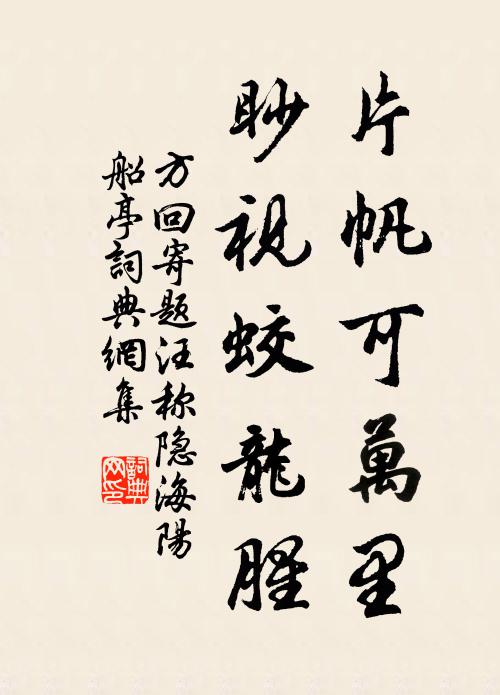 片帆可萬里
眇視蛟龍腥
方回寄題汪称隐海陽
船亭詞典網集
詞典
网印